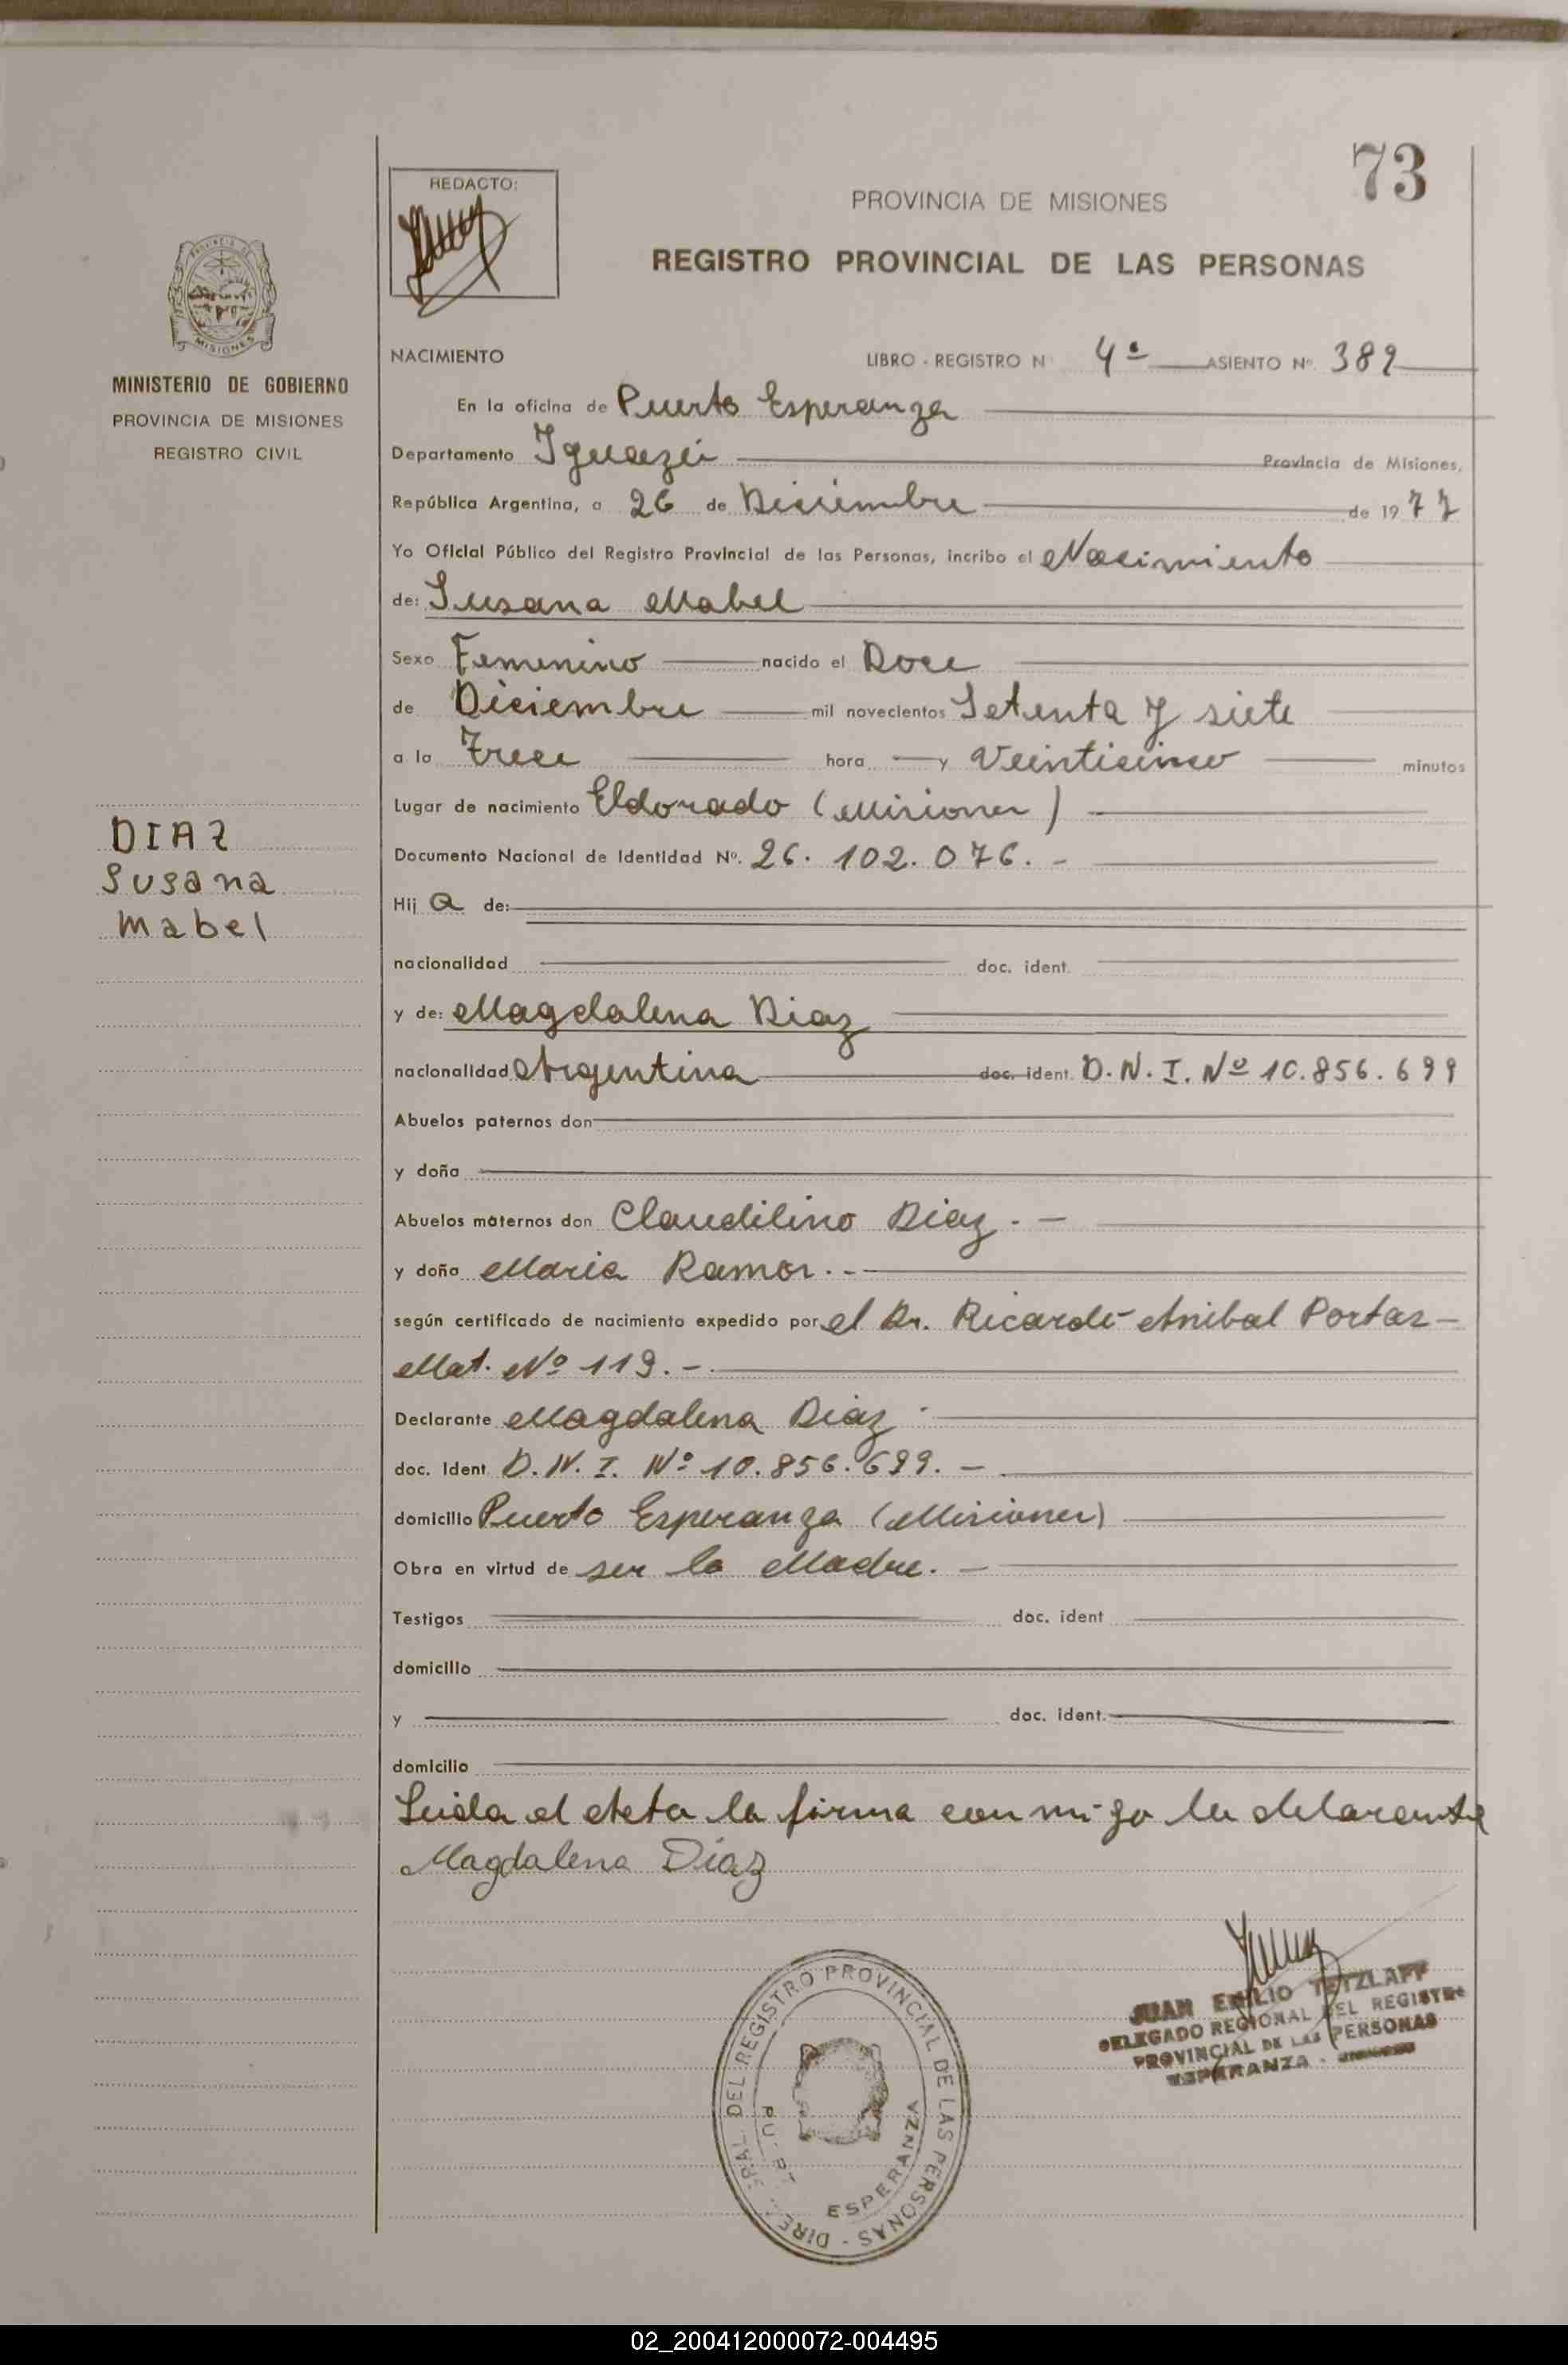 73
REDACTO:
PROVINCIA DE MISIONES
REGISTRO PROVINCIAL DE LAS PERSONAS
MISIONES
MINISTERIO DE GOBIERNO
PROVINCIA DE MISIONES
REGISTRO CIVIL
DIAZ
Susana
Mabel
NACIMIENTO LIBRO - REGISTRO N 4º ASIENTO Nº 389
En la oficina de Puerto Esperanza
Departamento Iguazú Provincia de Misiones,
República Argentina, a 26 de Diciembre de 1977
Yo Oficial Público del Registro Provincial de las Personas, incribo el Nacimiento
de: Susana Mabel
Sexo Femenino nacido el Doce
de Diciembre mil novecientos Setenta y siete
a la Trece hora y Veinticinco minutos
Lugar de nacimiento Eldorado (Misiones)
Documento Nacional de Identidad Nº. 26.102.076.-
Hij a de:
nacionalidad doc. ident.
y de: Magdalena Diaz
nacionalidad Argentina doc. ident. D.N.I. Nº 10.856.699
Abuelos paternos don
y doña
Abuelos maternos don Claudilino Diaz.-
y doña Maria Ramos.-
según certificado de nacimiento expedido por el Dr. Ricardo Anibal Portas-
Mat. Nº 119.-
Declarante Magdalena Diaz
doc. Ident D.N.I. Nº 10.856.699.-
domicilio Puerto Esperanza (Misiones)
Obra en virtud de ser la Madre.-
Testigos doc. ident
domicilio
y doc. ident.
domicilio
Leida el Acta la firma con migo la declarante
Magdalena Díaz
DEL REGISTRO PROVINCIAL DE LAS PERSONAS -
ESPERANZA
JUAN EMILIO TETZLAFF
DELEGADO REGIONAL DEL REGISTRO
PROVINCIAL DE LAS PERSONAS
ESPERANZA
02_200412000072-004495